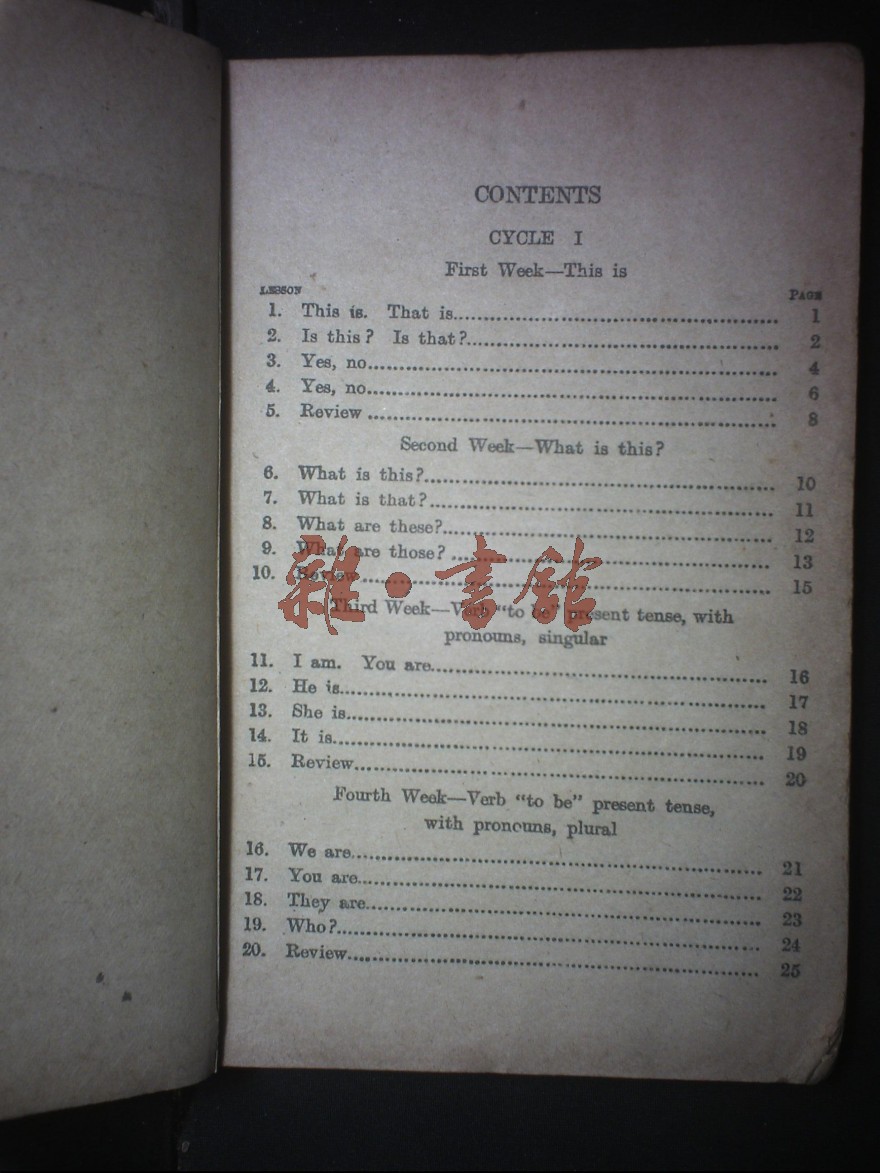 CONTENTS
CYCLE I
First Week—This is
LESSON PAGE
1. This is. That is........ 1
2. Is this? Is that?........ 2
3. Yes, no........ 4
4. Yes, no........ 6
5. Review ........ 8
Second Week—What is this?
6. What is this?........ 10
7. What is that?........ 11
8. What are these?........ 12
9. What are those? ........ 13
10. Review........ 15
雜·書館
Third Week—Verb “to be” present tense, with
pronouns, singular
11. I am. You are........ 16
12. He is........ 17
13. She is........ 18
14. It is........ 19
15. Review........ 20
Fourth Week—Verb “to be” present tense,
with pronouns, plural
16. We are........ 21
17. You are........ 22
18. They are........ 23
19. Who?........ 24
20. Review........ 25